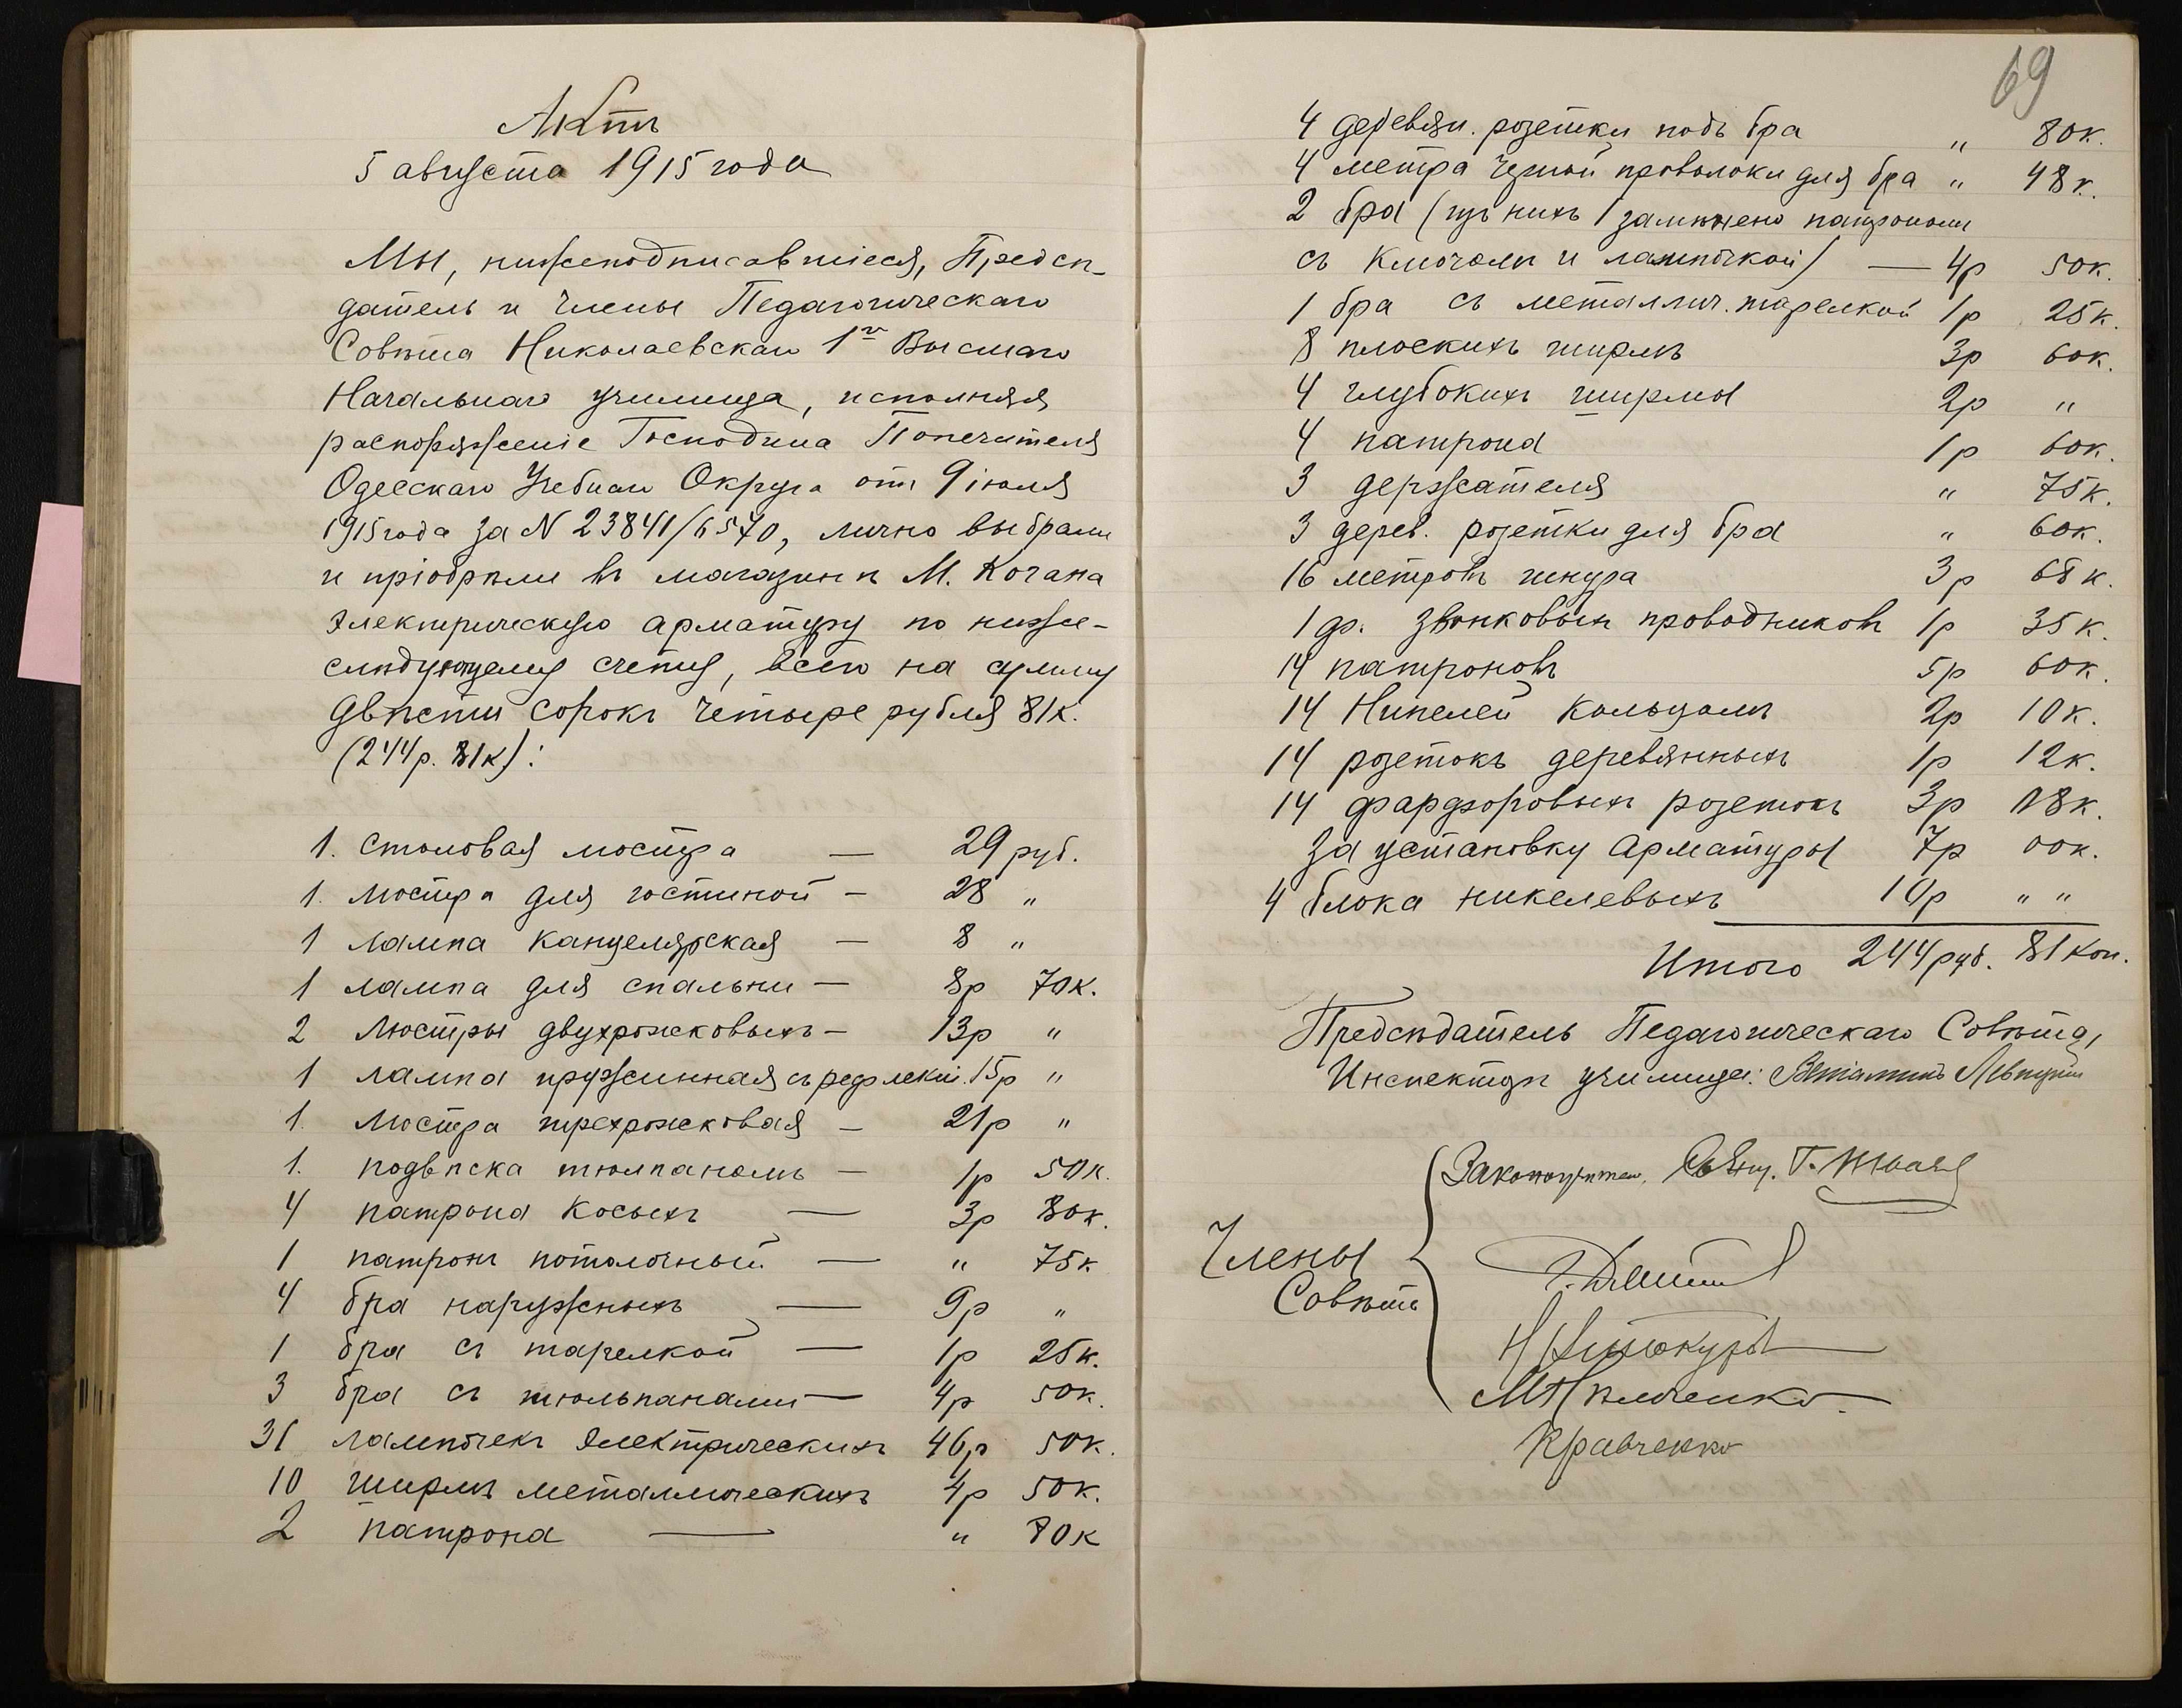 Актъ
5 августа 1915 года
Мы, нижеподписавшіеся, Предсѣ-
датель и Члены Педагогическаго
Совѣта Николаевскаго 1го Высшаго
Начальнаго училища, исполняя
распоряженіе Господина Попечителя
Одесскаго Учебнаго Округа отъ 9 іюля
1915 года за N 23841/6570, лично выбрали
и пріобрѣли въ магазинѣ М. Когана
Электрическую арматуру по ниже-
слѣдующему счету, всего на сумму
Двѣсти сорокъ четыре рубля 81к.
(244р. 81к):
1. Столовая люстра — 29 руб.
1. Люстра для гостиной — 28 "
1 лампа канцелярская — 8 "
1 лампа для спальни — 8р 70к.
2 Люстры двухрожковыхъ — 13р "
1 лампа пружинная съ рефлект. 15р "
1. Люстра трехрожковая — 21р "
1. подвѣска тюлпаномъ — 1р 50к.
4 патрона косыхъ — 3р 80к.
1 патронъ потолочный — " 75к
4 бра наружныхъ — 9р "
1 бра съ тарелкой — 1р 25к.
3 бра съ тюльпанами — 4р 50к.
31 лампочекъ электрическихъ 46р 50к.
10 ширмъ металлическихъ 4р 50к.
2 патрона — " 70к
69
4 деревян. розетки подъ бра " 80к.
4 метра черной проволоки для бра " 48к.
2 бра (изъ нихъ 1 замѣнено патрономъ
съ Ключомъ и лампочкой) — 4р 50к.
1 бра съ металлич. тарелкой 1р 25к.
8 плоскихъ ширмъ 3р 60к.
4 глубокихъ ширмы 2р "
4 патрона 1р 60к.
3 держателя " 75к.
3 дерев. розетки для бра " 60к.
16 метровъ шнура 3р 68к.
1 др. звонковыхъ проводниковъ 1р 35к.
14 патроновъ 5р 60к.
14 Нипелей кольцомъ 2р 10к.
14 розетокъ деревянныхъ 1р 12к.
14 фарфоровыхъ розетокъ 3р 18к.
За установку Арматуры 7р 00к.
4 блока никелевыхъ 10р " "
Итого 244 руб. 81 коп.
Предсѣдатель Педагогическаго Совѣта,
Инспекторъ училища:
Законоучител. Свящ. Г.
Члены
Совѣта
Кравченко